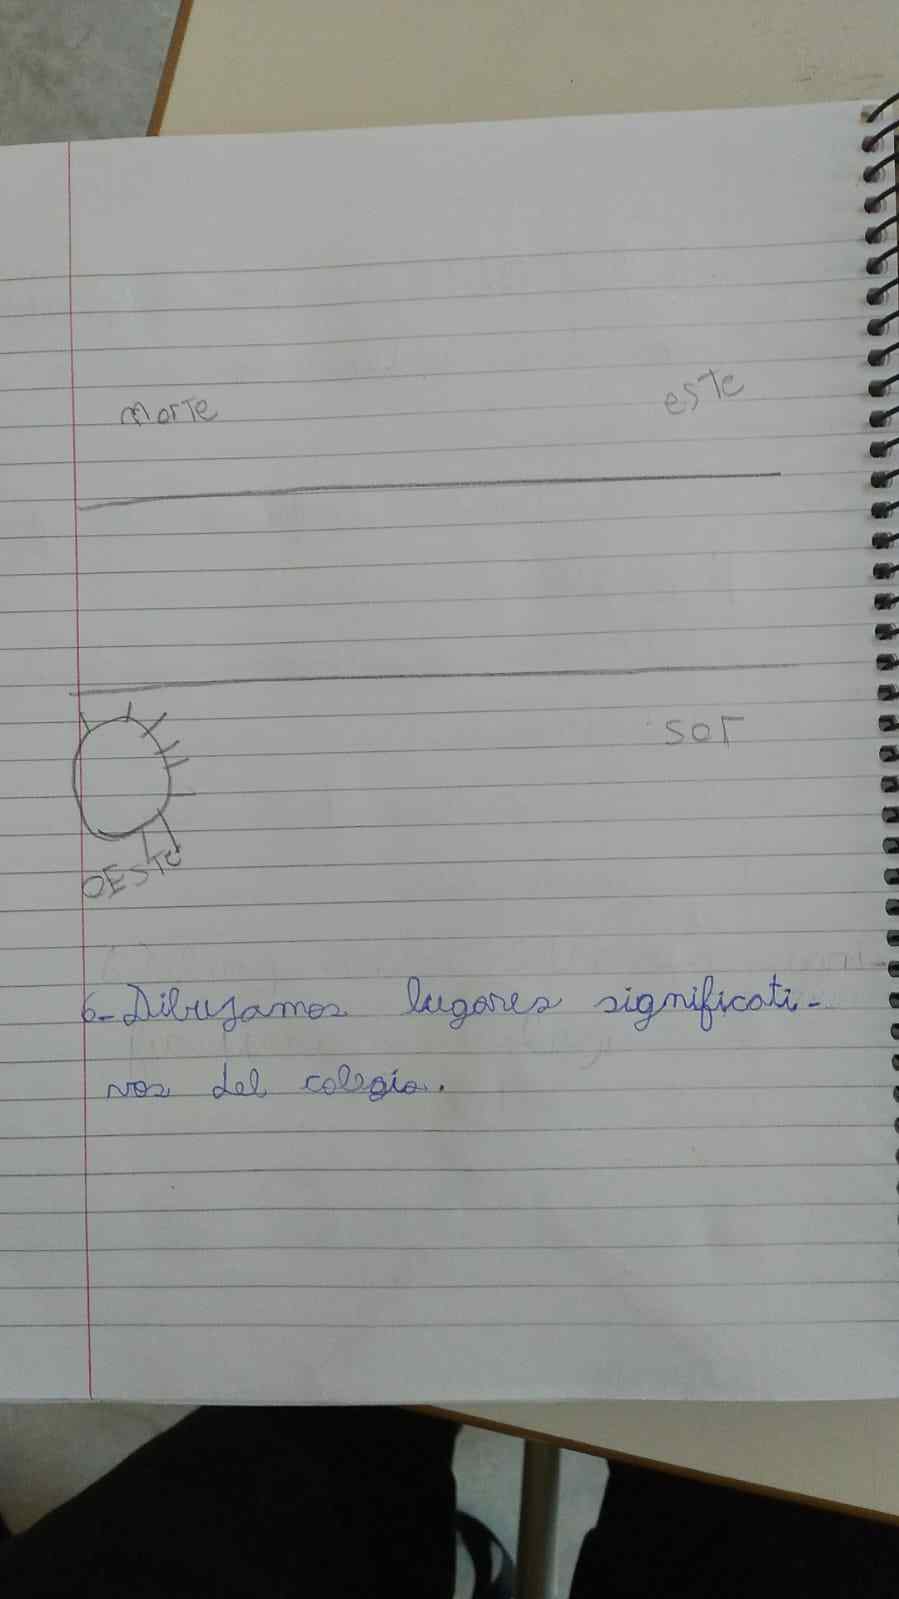 morte este
sor
OESTe
6-Dibujamos lugares significati-
vos del colegio.